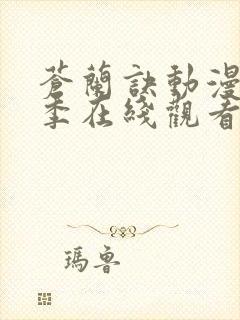 蒼蘭訣動漫
季在綫觀看
瑪魯